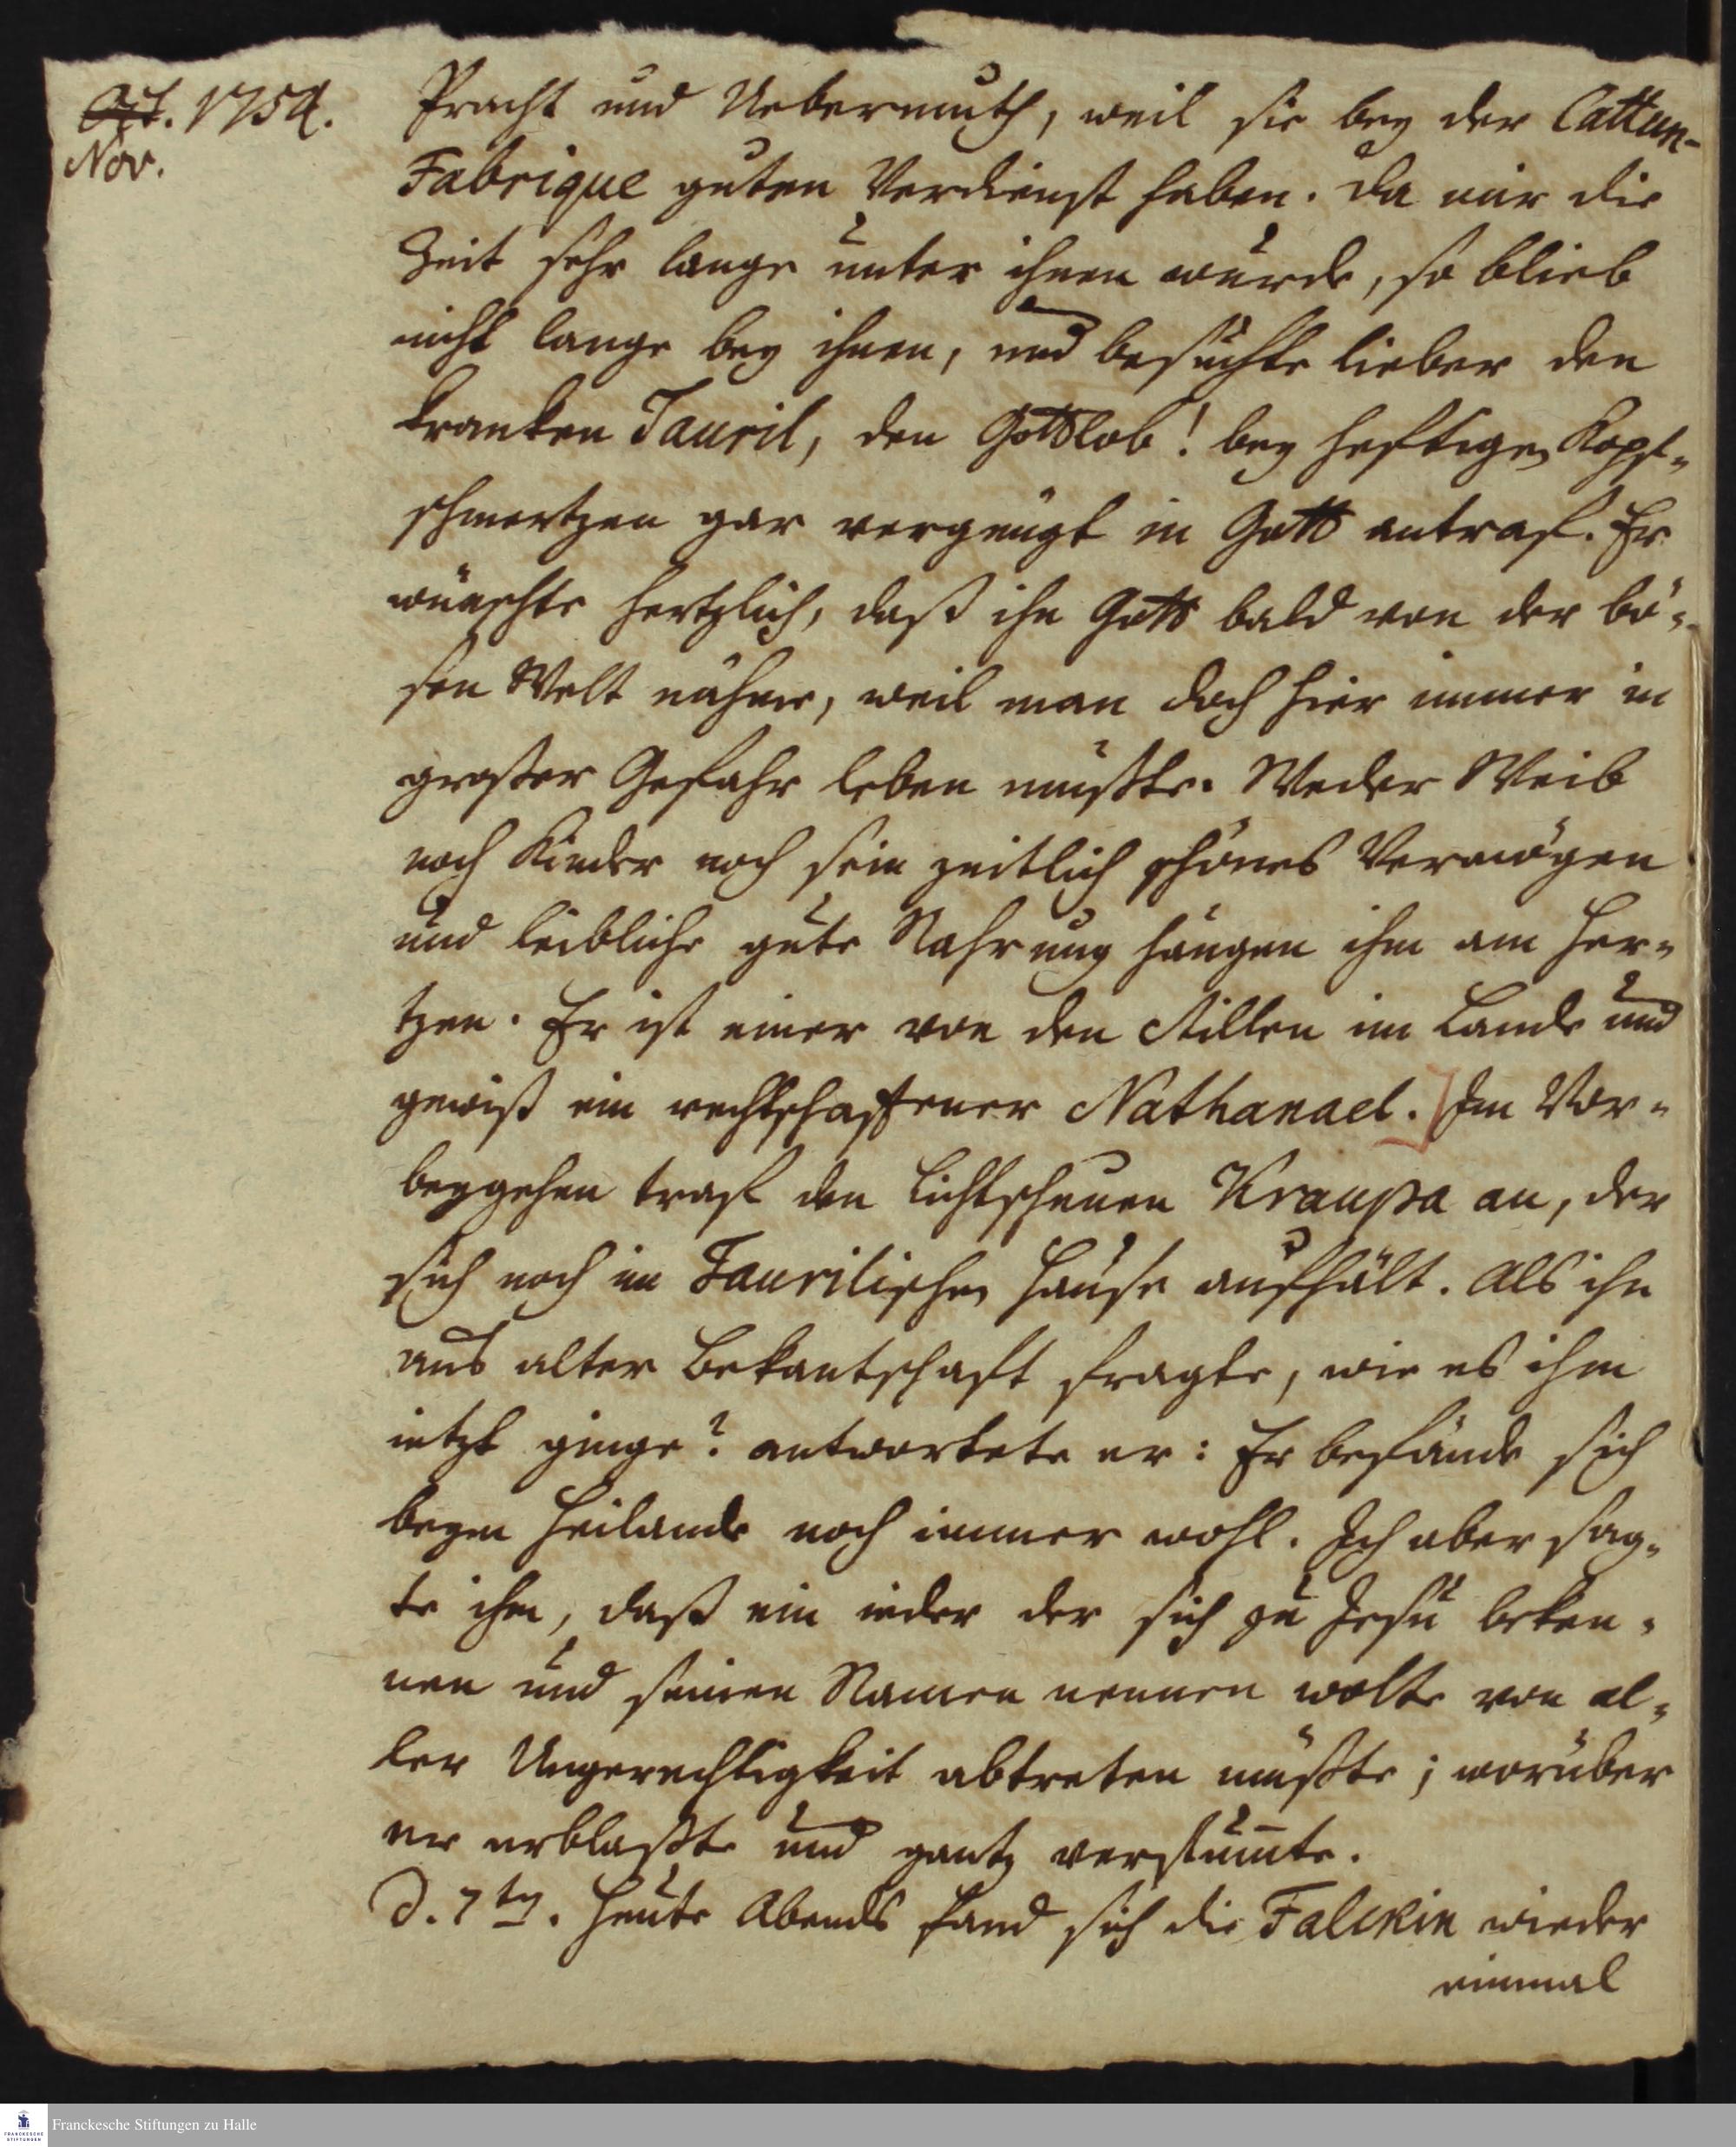 Oct. 1754.
Nov.
Pracht und Uebermuth, weil sie bey der Cattun-
Fabrique guten Verdienst haben. Da mir die
Zeit sehr lange unter ihnen wurde, so blieb
nicht lange bey ihnen, und besuchte lieber den
krancken Tauril, den Gottlob! bey heftigen Kopf-
schmertzen gar vergnügt in Gott antraf. Er
wünschte hertzlich, daß ihn Gott bald von der bö-
sen Welt nähme, weil man doch hier immer in
großer Gefahr leben müßte. Weder Weib
noch Kinder noch sein zeitlich schönes Vermögen
und leibliche gute Nahrung hangen ihm am Her-
tzen. Er ist einer von den Stillen im Lande und
gewiß ein rechtschaffener Nathanael. Im Vor-
beygehen traf den lichtscheuen Kraupa an, der
sich noch im Taurilischen Hause aufhält. Als ihn
aus alter Bekantschaft fragte, wie es ihm
ietzt ginge? antwortete er: Er befände sich
beym Heilande noch immer wohl. Ich aber sag-
te ihm, daß ein ieder der sich zu Jesu beken-
nen und seinen Namen nennen wolte von al-
ler Ungerechtigkeit abtreten müßte; worüber
er erblaßte und gantz verstumte.
D. 7ten. Heute Abends fand sich die Falckin wieder
einmal
Franckesche Stiftungen zu Halle